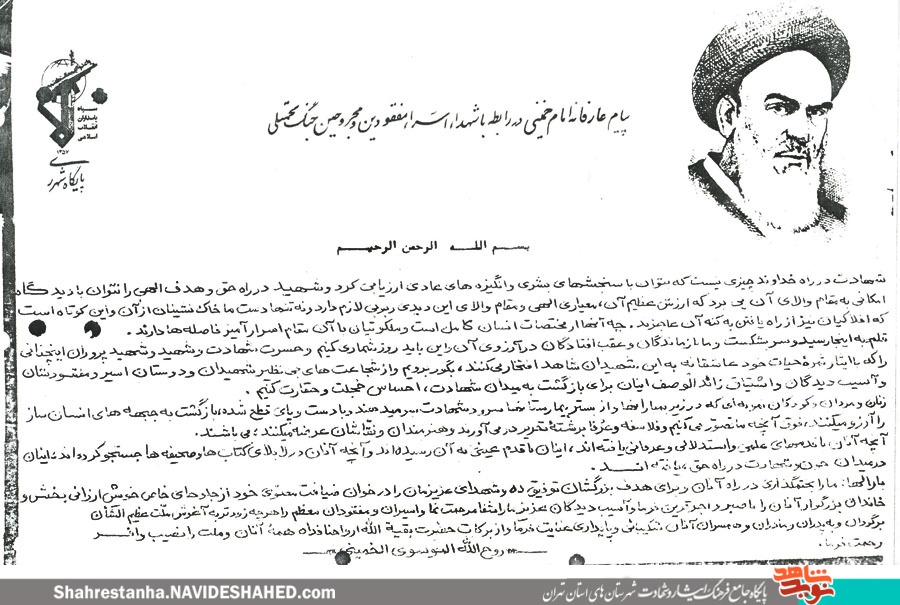 پیام عارفانه امام خمینی در رابطه با شهداء، اسراء، مفقودین و مجروحین جنگ تحمیلی
سپاه
پاسداران
انقلاب
اسلامی
۱۳۵۷
پایگاه شهرری
بسم الله الرحمن الرحیم
شهادت در راه خداوند چیزی نیست که بتوان با سنجشهای بشری و انگیزه های عادی ارزیابی کرد و شهید در راه حق و هدف الهی را نتوان با دیدگاه
امکانی به مقام والای آن پی برد که ارزش عظیم آن، معیاری الهی و مقام والای این دیدی ربوبی لازم دارد و نه تنها دست ما خاک نشینان از آن و این کوتاه است
که افلاکیان نیز از راه یافتن به کنه آن عاجزند. چه آنها از مختصات انسان کامل است و ملکوتیان با آن مقام اسرارآمیز فاصله ها دارند.
قلم به اینجا رسید و سر بشکست و ما بازماندگان و عقب افتادگان در آرزوی آن و این باید روز شماری کنیم و حسرت شهادت و شهید و شهید پروران اینچنانی
را که با ایثار ثمره حیات خود عاشقانه به این شهیدان شاهد افتخار می‌کنند، بگور برویم و از شجاعت های بی نظیر شهیدان و دوستان اسیر و مفقودشان
و آسیب دیدگان و اشتیاق زائدالوصف اینان برای بازگشت به میدان شهادت، احساس خجلت و حقارت کنیم.
زنان و مردان و کودکان نمونه‌ای که در زیر بمبارانها و از بستر بیمارستانها سرود شهادت سر میدهند و با دست و پای قطع شده، بازگشت به جبهه های انسان ساز
را آرزو میکنند، فوق آنچه ما تصور می‌کنیم و فلاسفه و عرفا برشته تحریر در می‌آورند و هنرمندان و نقاشان عرضه میکنند، می باشند.
آنچه آنان با قدمهای علمی و استدلالی و عرفانی یافته اند، اینان با قدم عینی به آن رسیده اند و آنچه آنان در لابلای کتاب ها و صحیفه ها جستجو کرده اند، اینان
در میدان خون و شهادت در راه حق، یافته انـد.
بارالها: ما را بخدمتگذاری در راه آنان و برای هدف بزرگشان توفیق ده و شهدای عزیزمان را در خوان ضیافت معنوی خود از جلوه‌های خاص خویش ارزانی بخش و
خاندان بزرگوار آنان را با صبر و اجر قرین فرما و آسیب دیدگان عزیز ما را شفا مرحمت فرما و اسیران و مفقودان معظم را هر چه زودتر به آغوش ملت عظیم الشأن
برگردان و به پدران و مادران و همسران آنان شکیبائی و پایداری عنایت فرما و از برکات حضرت بقیة الله ارواحنا فداه همهٔ آنان و ملت را نصیب وافـر
رحمت فرما.
روح‌الله الموسوی الخمینی
Shahrestanha.NAVIDESHAHED.com
پایگاه جامع فرهنگ ایثار و شهادت شهرستان های استان تهران
نوید شاهد